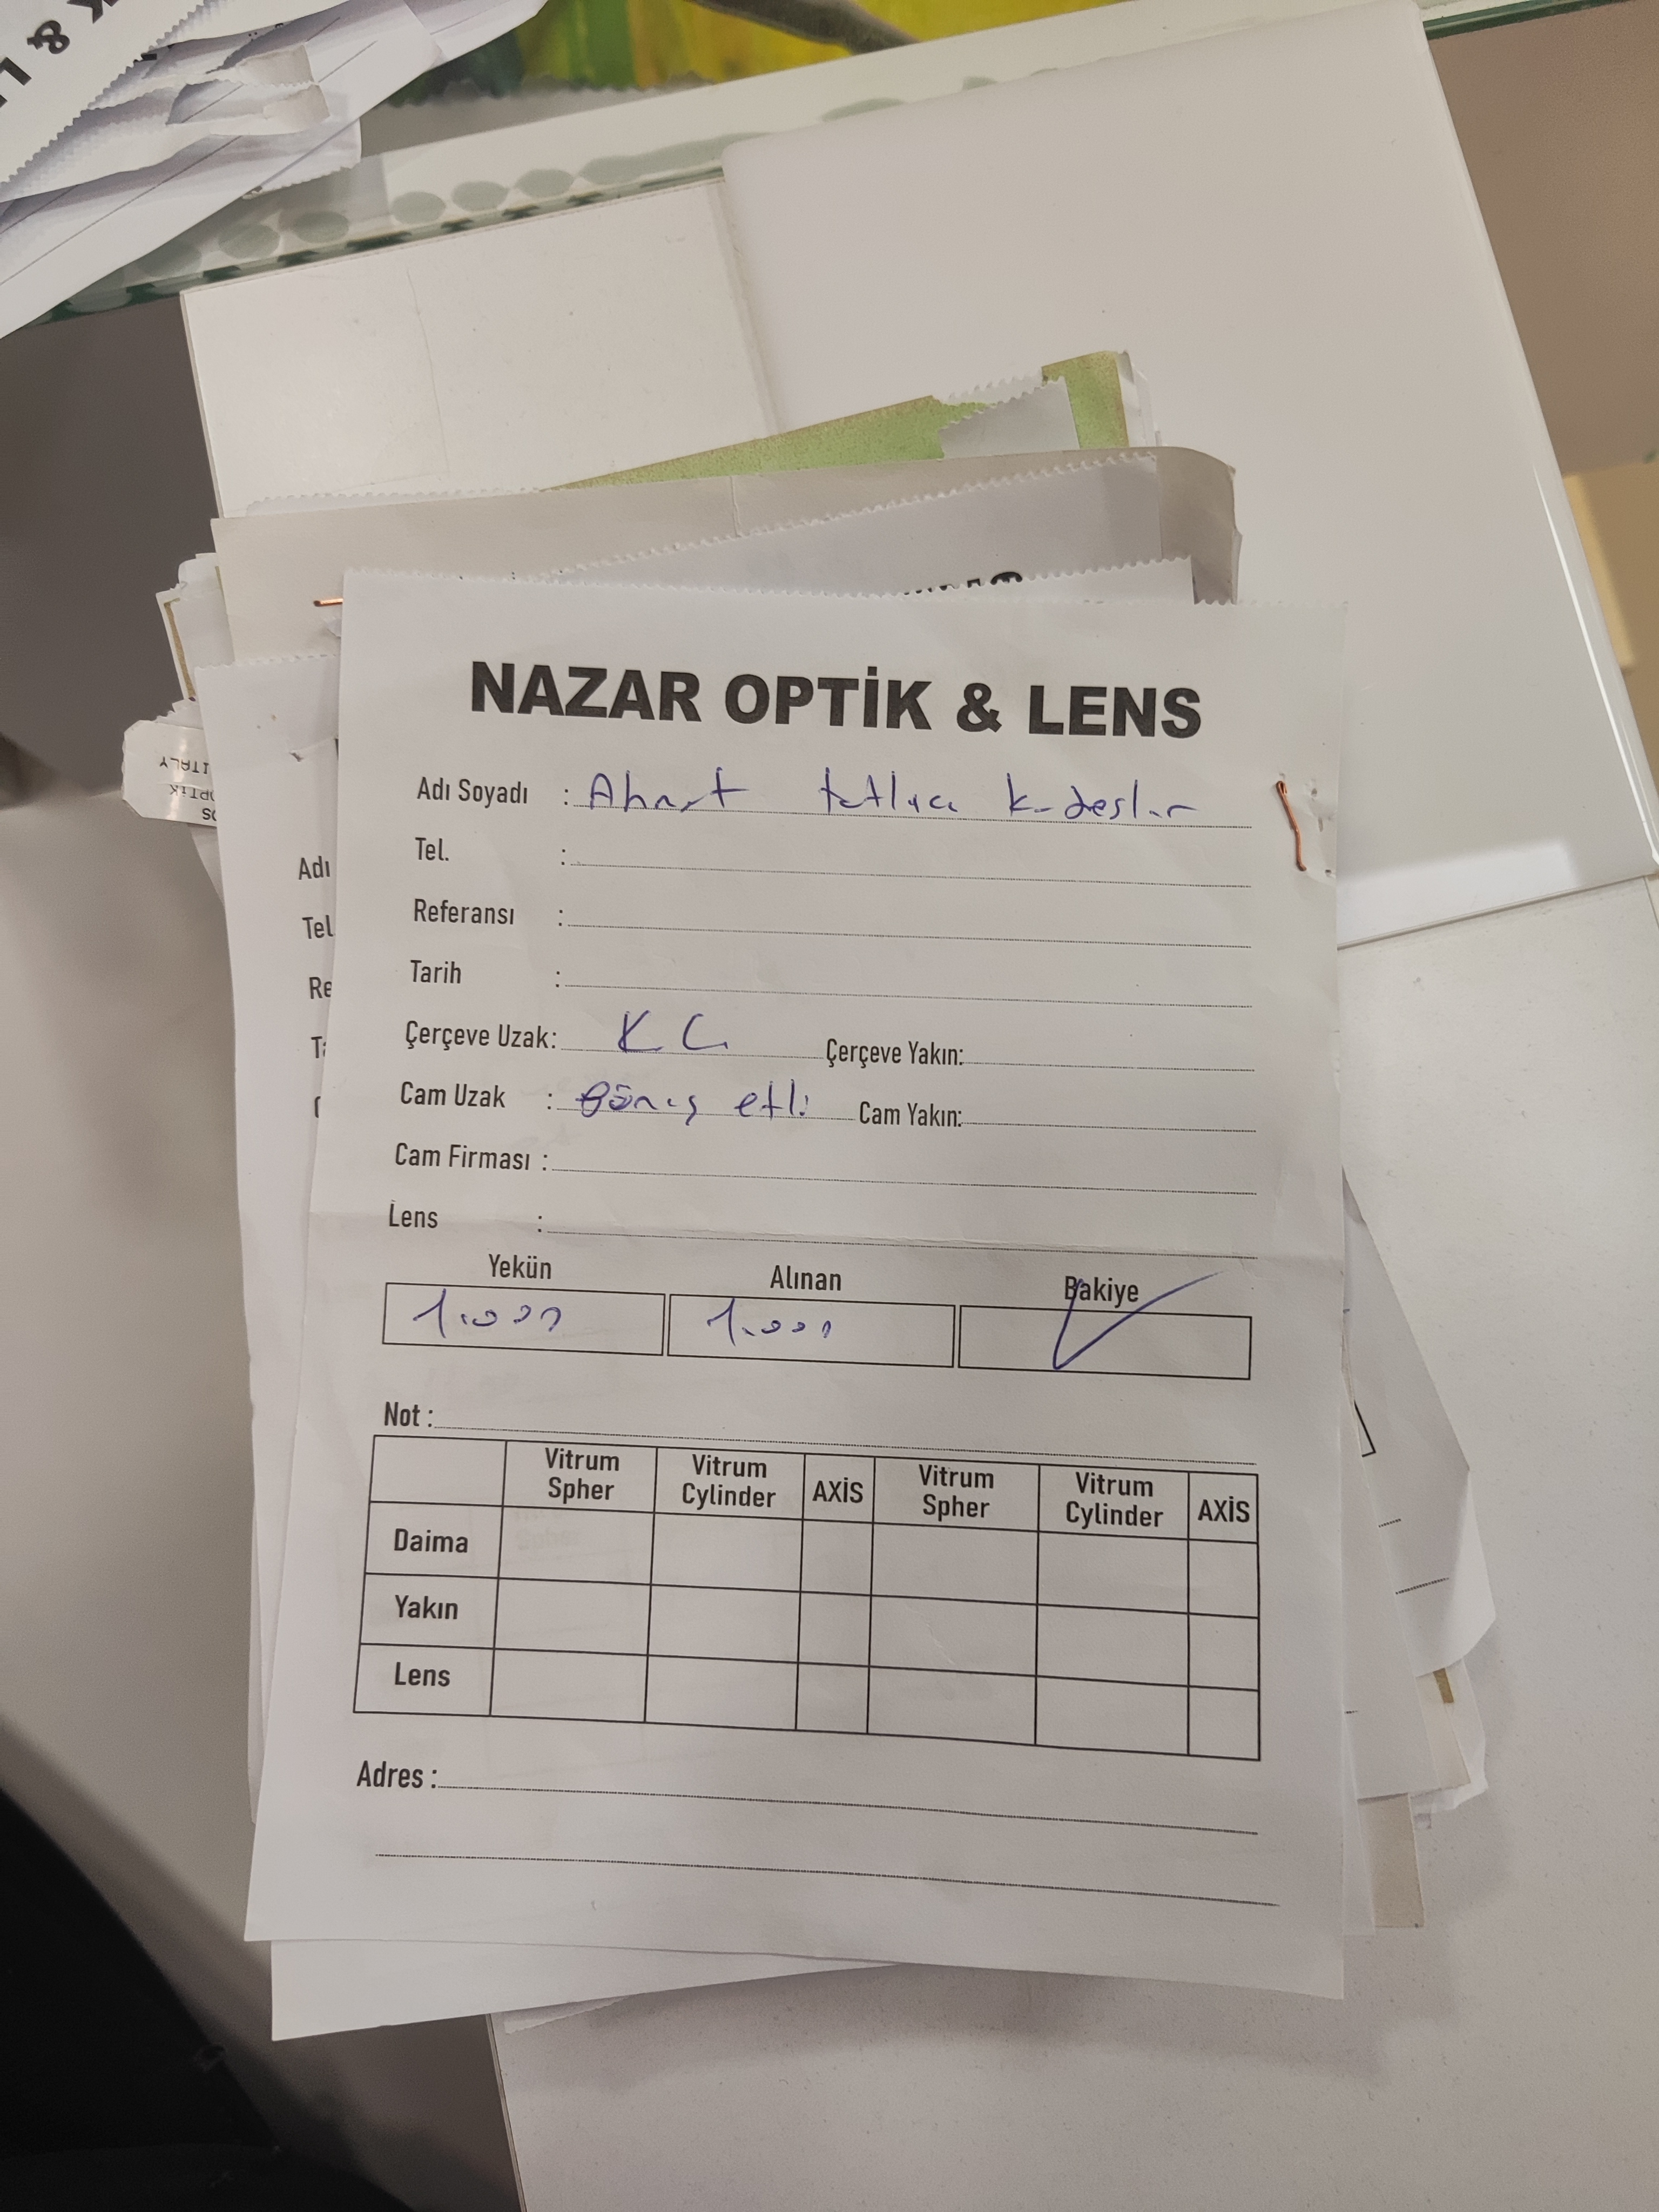 NAZAR OPTİK & LENS
Adı Soyadı : Ahmet tatlıcı kardeşler
Tel. :
Referansı :
Tarih :
Çerçeve Uzak: K Ç Çerçeve Yakın:
Cam Uzak : etli Cam Yakın:
Cam Firması :
Lens :
Yekün Alınan Bakiye
1.000 1.000
Not :
Vitrum Spher Vitrum Cylinder AXİS Vitrum Spher Vitrum Cylinder AXİS
Daima
Yakın
Lens
Adres :
Adı
Tel
Re
ITALY
OPTİK